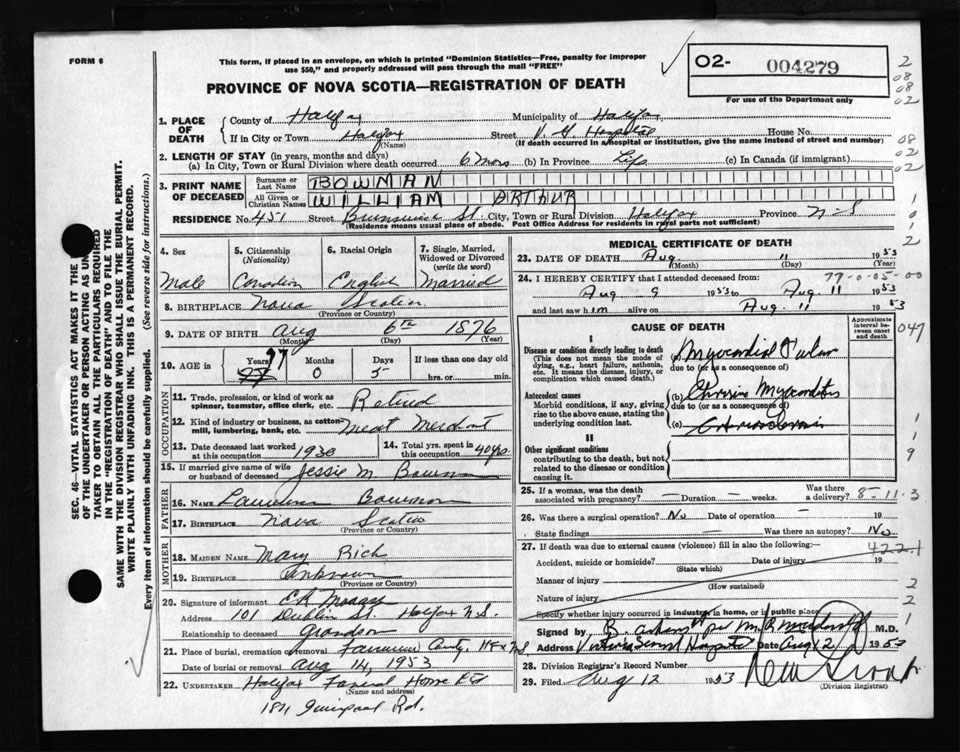 FORM 6
This form, if placed in an envelope, on which is printed "Dominion Statistics—Free, penalty for improper
use $50," and properly addressed will pass through the mail "FREE"
02- 004279
For use of the Department only
PROVINCE OF NOVA SCOTIA—REGISTRATION OF DEATH
1. PLACE OF DEATH
County of Halifax Municipality of Halifax
If in City or Town Halifax Street V. G. Hospital House No.
(Name) (If death occurred in hospital or institution, give the name instead of street and number)
2. LENGTH OF STAY (in years, months and days)
(a) In City, Town or Rural Division where death occurred 6 mos (b) In Province Life (c) In Canada (if immigrant)
3. PRINT NAME OF DECEASED
Surname or Last Name BOWMAN
All Given or Christian Names WILLIAM ARTHUR
RESIDENCE No. 451 Street Brunswick St. City, Town or Rural Division Halifax Province N-S
(Residence means usual place of abode. Post Office Address for residents in rural parts not sufficient)
4. Sex Male
5. Citizenship (Nationality) Canadian
6. Racial Origin English
7. Single, Married, Widowed or Divorced (write the word) Married
8. BIRTHPLACE Nova Scotia
(Province or Country)
9. DATE OF BIRTH Aug 6th 1876
(Month) (Day) (Year)
10. AGE in Years 77 Months 0 Days 5 If less than one day old
hrs. or min.
OCCUPATION
11. Trade, profession, or kind of work as spinner, teamster, office clerk, etc. Retired
12. Kind of industry or business, as cotton mill, lumbering, bank, etc. Meat Merchant
13. Date deceased last worked at this occupation 1930
14. Total yrs. spent in this occupation 40 yrs.
15. If married give name of wife or husband of deceased Jessie M. Bowman
FATHER
16. NAME Bowman
17. BIRTHPLACE Nova Scotia
(Province or Country)
MOTHER
18. MAIDEN NAME Mary Rich
19. BIRTHPLACE Unknown
(Province or Country)
20. Signature of informant
Address 101 Dublin St. Halifax N.S.
Relationship to deceased Grandson
21. Place of burial, cremation or removal Hfx N.S.
Date of burial or removal Aug 14, 1953
22. UNDERTAKER Halifax Funeral Home Ltd
(Name and address)
Rd.
SEC. 46—VITAL STATISTICS ACT MAKES IT THE
OF THE UNDERTAKER OR PERSON ACTING AS UN
TAKER TO OBTAIN ALL THE PARTICULARS REQUIRED
IN THE "REGISTRATION OF DEATH" AND TO FILE THE
SAME WITH THE DIVISION REGISTRAR WHO SHALL ISSUE THE BURIAL PERMIT.
WRITE PLAINLY WITH UNFADING INK. THIS IS A PERMANENT RECORD.
Every item of information should be carefully supplied. (See reverse side for instructions.)
MEDICAL CERTIFICATE OF DEATH
23. DATE OF DEATH Aug. 11 1953
(Month) (Day) (Year)
24. I HEREBY CERTIFY that I attended deceased from: 77-0-05-00
Aug 9 1953 to Aug 11 1953
and last saw him alive on Aug. 11 1953
CAUSE OF DEATH
Approximate interval between onset and death
047
I
Disease or condition directly leading to death
(This does not mean the mode of dying, e.g., heart failure, asthenia, etc. It means the disease, injury, or complication which caused death.)
(a) Myocardial Failure
due to (or as a consequence of)
Antecedent causes
Morbid conditions, if any, giving rise to the above cause, stating the underlying condition last.
(b) Chronic Myocarditis
due to (or as a consequence of)
(c)
II
Other significant conditions
contributing to the death, but not related to the disease or condition causing it.
25. If a woman, was the death associated with pregnancy? — Duration — weeks. Was there a delivery? 8-11-3
26. Was there a surgical operation? No Date of operation — 19
State findings Was there an autopsy? No
27. If death was due to external causes (violence) fill in also the following:— 422.1
Accident, suicide or homicide? Date of injury 19
(State which)
Manner of injury
(How sustained)
Nature of injury
Specify whether injury occurred in industry, in home, or in public place
Signed by M.D.
Address Date Aug 12 1953
28. Division Registrar's Record Number
29. Filed Aug 12 1953
(Division Registrar)
2
08
08
02
08
02
02
1
0
1
2
1
1
9
2
2
1